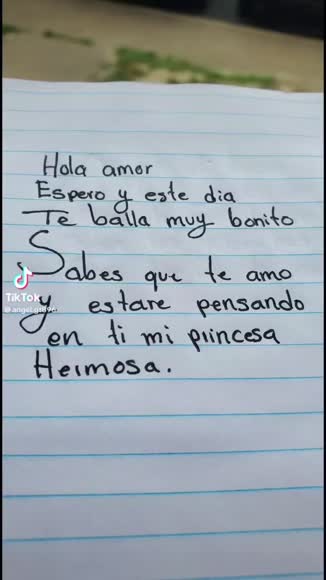 Hola amor
Espero y este dia
Te balla muy bonito
Sabes que te amo
y estare pensando
en ti mi princesa
Hermosa.
TikTok